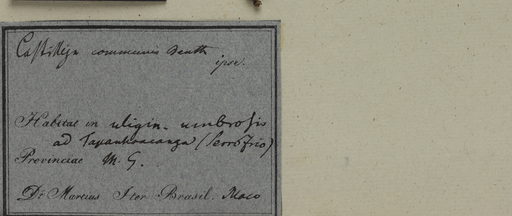 Castilleja communis Benth
ipse.
Habitat in uligin. umbrosis
ad Tapanhoacanga (Serro Frio)
Provinciae M. G.
Dr. Martius Iter Brasil.